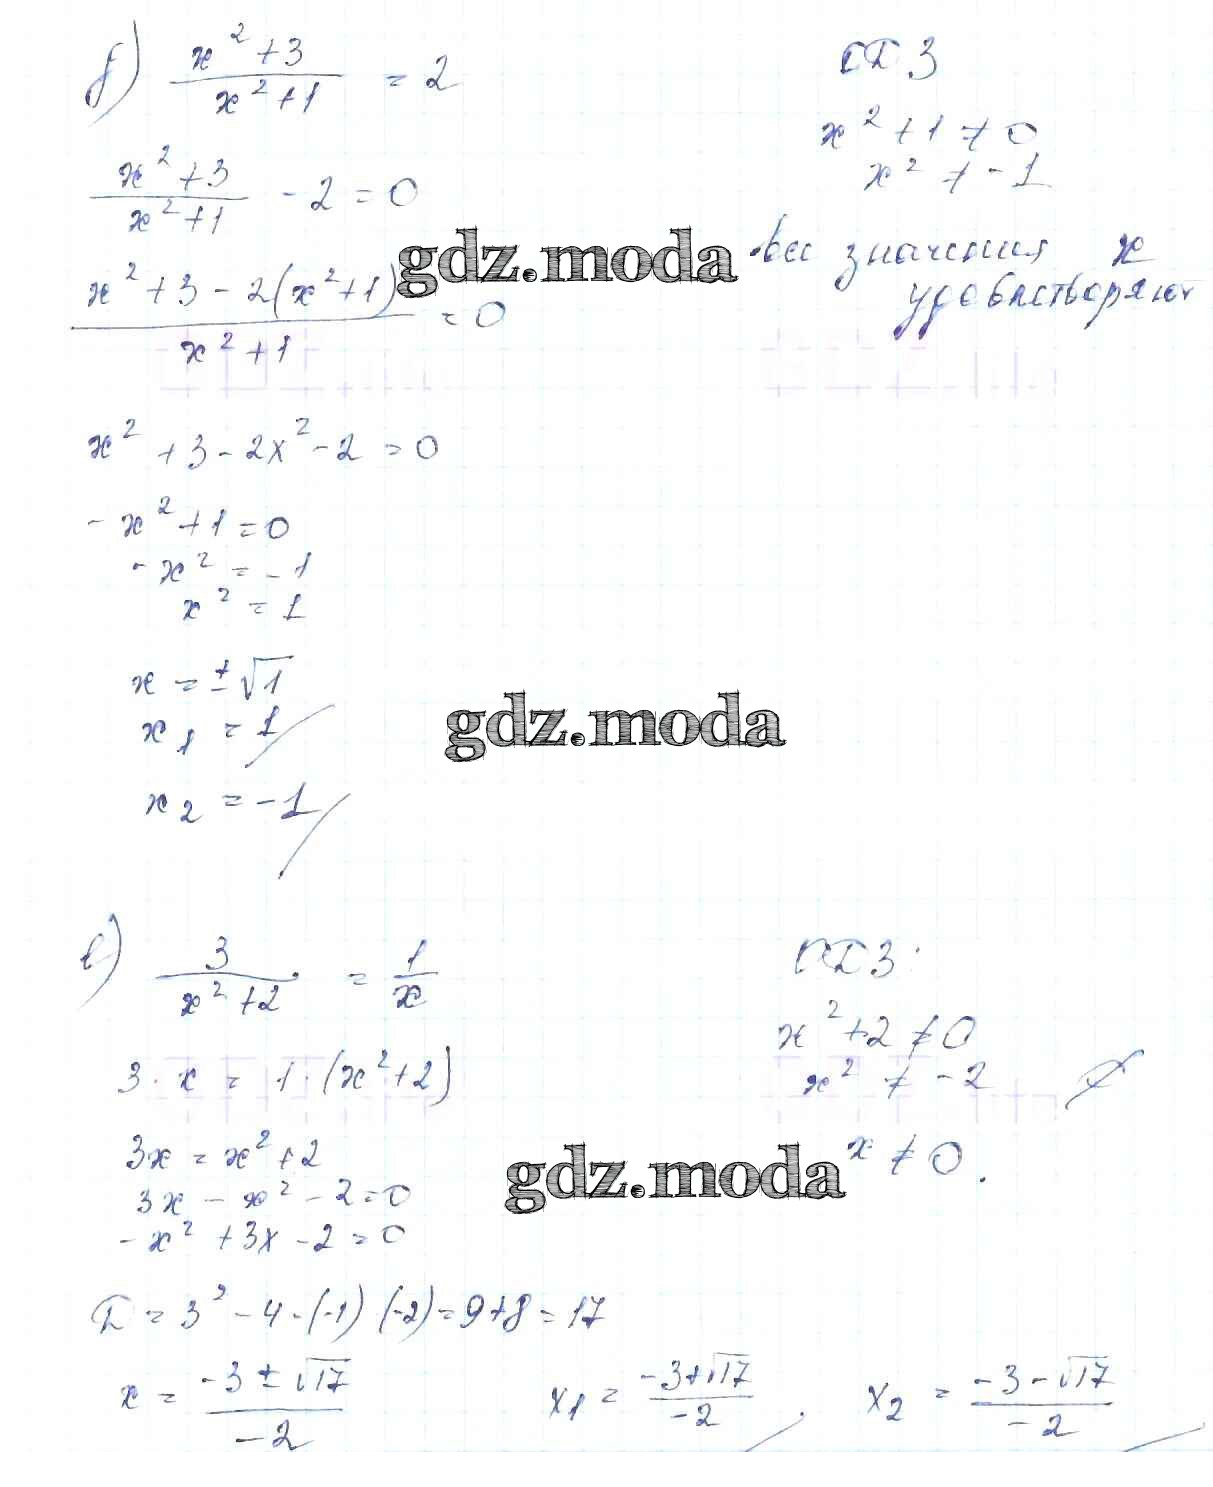 б) (x²+3)/(x²+1) = 2
ОДЗ
x²+1 ≠ 0
x² ≠ -1
все значения x
удовлетворяют
(x²+3)/(x²+1) - 2 = 0
(x²+3-2(x²+1))/(x²+1) = 0
gdz.moda
x²+3-2x²-2=0
-x²+1=0
-x²=-1
x²=1
x=±√1
x₁=1
gdz.moda
x₂=-1
в) 3/(x²+2) = 1/x
ОДЗ
x²+2 ≠ 0
x² ≠ -2
x ≠ 0.
3·x = 1·(x²+2)
3x = x²+2
gdz.moda
3x - x² - 2=0
-x²+3x-2=0
D=3²-4·(-1)(-2)=9+8=17
x = (-3±√17)/-2
x₁ = (-3+√17)/-2
x₂ = (-3-√17)/-2